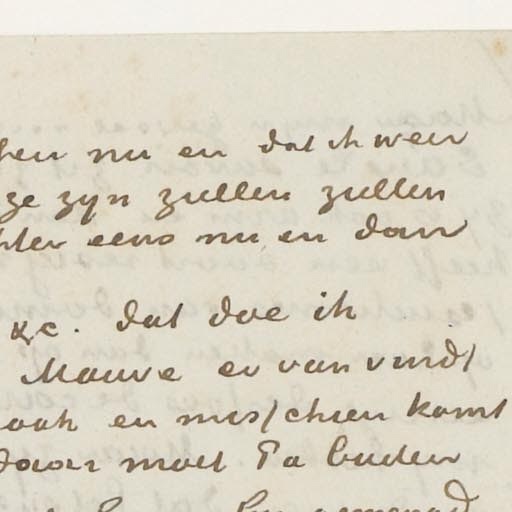 nu en dat ik weer
ze zyn zullen zullen
hter eens nu en dan
&c. dat doe ik
Mauve er van vindt
ook en misschien komt
daar moet Pa buiten